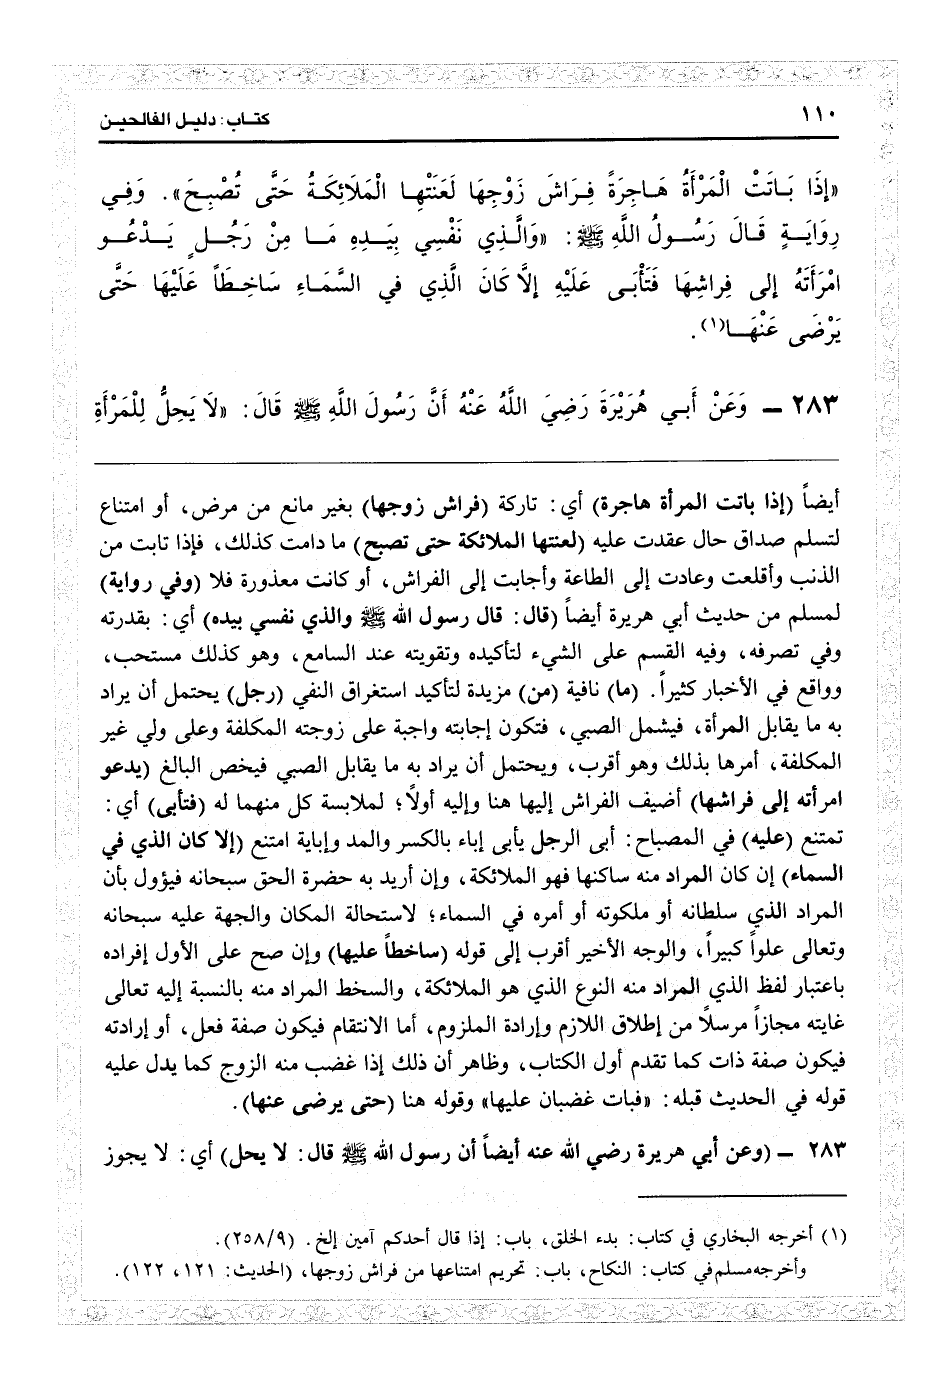 ١١٠
كتاب: دليل الفالحين
«إِذَا بَاتَتْ الْمَرْأَةُ هَاجِرَةً فِرَاشَ زَوْجِهَا لَعَنَتْهَا الْمَلَائِكَةُ حَتَّى تُصْبِحَ». وَفِي
رِوَايَةٍ قَالَ رَسُولُ اللَّهِ ﷺ: «وَالَّذِي نَفْسِي بِيَدِهِ مَا مِنْ رَجُلٍ يَدْعُو
امْرَأَتَهُ إلى فِراشِهَا فَتَأْبَى عَلَيْهِ إلاَّ كَانَ الَّذِي في السَّمَاءِ سَاخِطَاً عَلَيْهَا حَتَّى
يَرْضَى عَنْهَا(١).
٢٨٣ ـ وَعَنْ أَبي هُرَيْرَةَ رَضِيَ اللَّهُ عَنْهُ أَنَّ رَسُولَ اللَّهِ ﷺ قَالَ: «لَا يَحِلُّ لِلْمَرْأَةِ
أيضاً (إذا باتت المرأة هاجرة) أي: تاركة (فراش زوجها) بغير مانع من مرض، أو امتناع
لتسلم صداق حال عقدت عليه (لعنتها الملائكة حتى تصبح) ما دامت كذلك، فإذا تابت من
الذنب وأقلعت وعادت إلى الطاعة وأجابت إلى الفراش، أو كانت معذورة فلا (وفي رواية)
لمسلم من حديث أبي هريرة أيضاً (قال: قال رسول الله ﷺ والذي نفسي بيده) أي: بقدرته
وفي تصرفه، وفيه القسم على الشيء لتأكيده وتقويته عند السامع، وهو كذلك مستحب،
وواقع في الأخبار كثيراً. (ما) نافية (من) مزيدة لتأكيد استغراق النفي (رجل) يحتمل أن يراد
به ما يقابل المرأة، فيشمل الصبي، فتكون إجابته واجبة على زوجته المكلفة وعلى ولي غير
المكلفة، أمرها بذلك وهو أقرب، ويحتمل أن يراد به ما يقابل الصبي فيخص البالغ (يدعو
امرأته إلى فراشها) أضيف الفراش إليها هنا وإليه أولاً؛ لملابسة كل منهما له (فتأبى) أي:
تمتنع (عليه) في المصباح: أبى الرجل يأبى إباء بالكسر والمد وإباية امتنع (إلا كان الذي في
السماء) إن كان المراد منه ساكنها فهو الملائكة، وإن أريد به حضرة الحق سبحانه فيؤول بأن
المراد الذي سلطانه أو ملكوته أو أمره في السماء؛ لاستحالة المكان والجهة عليه سبحانه
وتعالى علواً كبيراً، والوجه الأخير أقرب إلى قوله (ساخطاً عليها) وإن صح على الأول إفراده
باعتبار لفظ الذي المراد منه النوع الذي هو الملائكة، والسخط المراد منه بالنسبة إليه تعالى
غايته مجازاً مرسلاً من إطلاق اللازم وإرادة الملزوم، أما الانتقام فيكون صفة فعل، أو إرادته
فيكون صفة ذات كما تقدم أول الكتاب، وظاهر أن ذلك إذا غضب منه الزوج كما يدل عليه
قوله في الحديث قبله: «فبات غضبان عليها» وقوله هنا (حتى يرضى عنها).
٢٨٣ ـ (وعن أبي هريرة رضي الله عنه أيضاً أن رسول الله ﷺ قال: لا يحل) أي: لا يجوز
(١) أخرجه البخاري في كتاب: بدء الخلق، باب: إذا قال أحدكم آمين إلخ. (٢٥٨/٩).
وأخرجه مسلم في كتاب: النكاح، باب: تحريم امتناعها من فراش زوجها، (الحديث: ١٢١، ١٢٢).